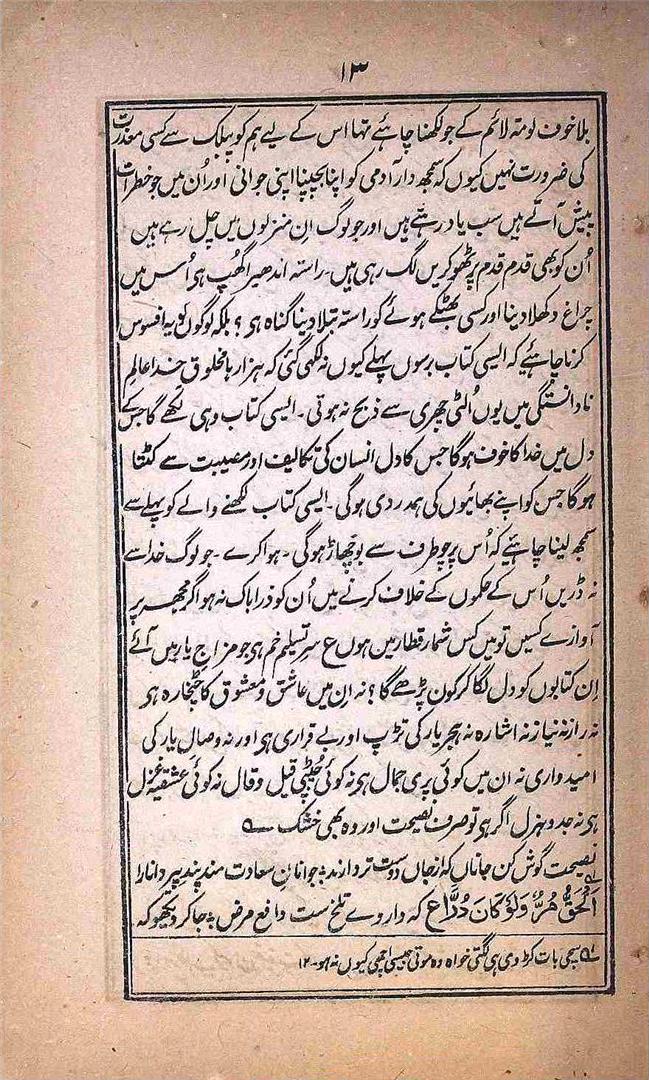 ۱۳
بلا خوف لومۃ لائم کے جو لکھنا چاہئے تھا اس کے لیے ہم کو پبلک سے کسی معذرت
کی ضرورت نہیں کیوں کہ سمجھ دار آدمی کو اپنا بچپنا اپنی جوانی اور اُن میں جو خطرات
پیش آتے ہیں سب یاد رہتے ہیں اور جو لوگ اِن منزلوں میں چل رہے ہیں
اُن کو بھی قدم قدم پر ٹھوکریں لگ رہی ہیں۔ راستہ اندھیرا گھُپ ہی اُس میں
چراغ دکھلا دینا اور کسی بھٹکے ہوئے کو راستہ بتلا دینا گناہ ہی؟ بلکہ لوگوں کو یہ افسوس
کرنا چاہئیے کہ ایسی کتاب برسوں پہلے کیوں نہ لکھی گئی کہ ہزارہا مخلوق خدا عالمِ
نادانستگی میں یوں اُلٹی چھری سے ذبح نہ ہوتی۔ ایسی کتاب وہی لکھے گا جس کے
دل میں خدا کا خوف ہوگا جس کا دل انسان کی تکالیف اور مصیبت سے کٹتا
ہوگا جس کو اپنے بھائیوں کی ہمدردی ہوگی۔ ایسی کتاب لکھنے والے کو پہلے سے
سمجھ لینا چاہئیے کہ اُس پر چوطرف سے بوچھاڑ ہوگی۔ ہوا کرے۔ جو لوگ خدا سے
نہ ڈریں اُس کے حکموں کے خلاف کرنے میں اُن کو ذرا باک نہ ہو اگر مجھ پر
آوازے کسیں تو میں کس شمار قطار میں ہوں ع سرِ تسلیم خم ہی جو مزاجِ یار میں آئے
اِن کتابوں کو دل لگا کر کون پڑھے گا؟ نہ اِن میں عاشق و معشوق کا چٹخارہ ہی
نہ راز نہ نیاز نہ اشارہ نہ ہجرِ یار کی تڑپ اور بے قراری ہی اور نہ وصالِ یار کی
امیدواری نہ ان میں کوئی پری جمال ہی نہ کوئی چٹپٹی قیل و قال نہ کوئی عشقیہ غزل
ہی نہ جد و ہزل اگر ہی تو صرف نصیحت اور وہ بھی خشک ؎
نصیحت گوش کن جاناں کہ از جاں دوست تر دارند ؛ جوانانِ سعادت مند پندِ پیرِ دانا را
اَلْحَقُّ مُرٌّ وَلَوْ کَانَ دُرًّا ع کہ داروے تلخ ست دافع مرض ؛ جا کر دیکھو کہ
سچی بات کڑوی ہی لگتی خواہ وہ موتی جیسی اچھی کیوں نہ ہو۔ ۱۲